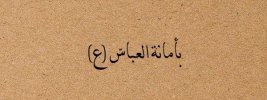 بأمانة العباسّ (ع)